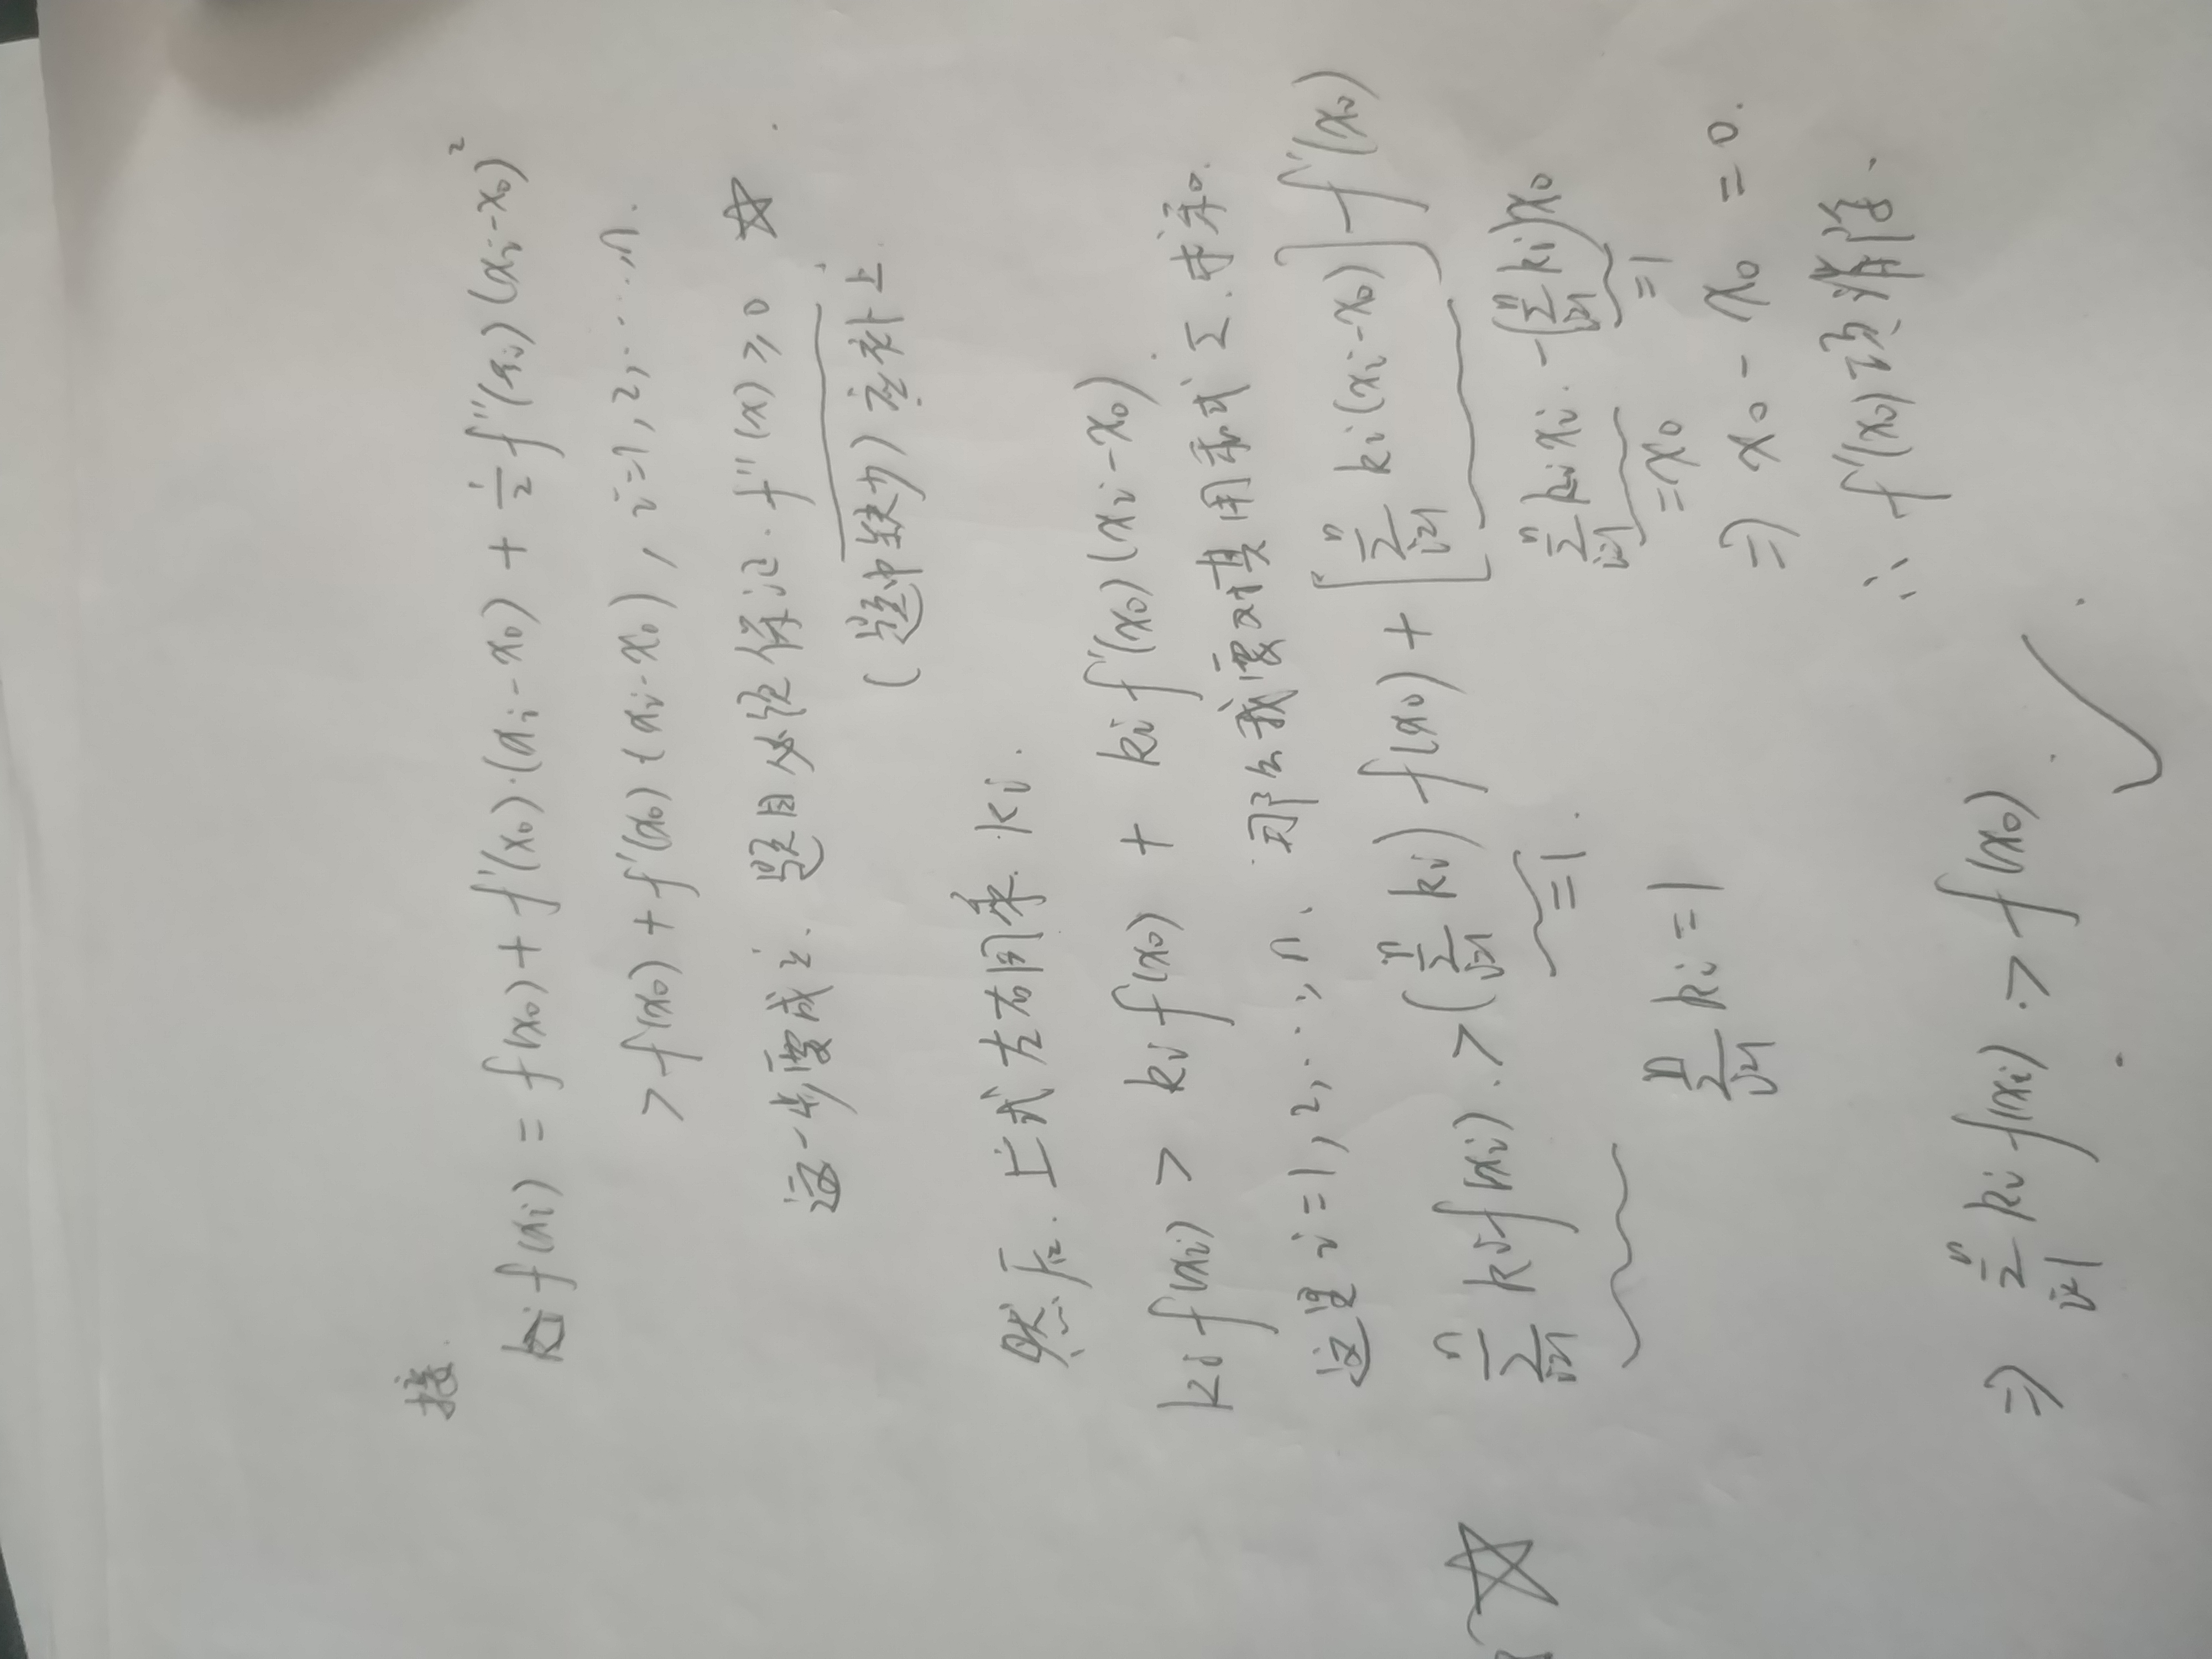 接.
f(xi) = f(x₀) + f'(x₀)·(xi - x₀) + 1/2 f''(ξi)(xi - x₀)²
> f(x₀) + f'(x₀)(xi - x₀) , i=1,2,....,n.
这一步要成立. 题目必须保证. f''(x) ≥ 0 ☆
(题中缺少) 应补上
然后. 上式左右同乘 ki.
ki f(xi) > ki f(x₀) + ki f'(x₀)(xi - x₀).
这里 i=1,2,...,n. 那么我需要用求和式 Σ 求和.
☆ Σ(i=1→n) ki f(xi) > (Σ(i=1→n) ki) f(x₀) + [Σ(i=1→n) ki(xi - x₀)] f'(x₀)
=1.
Σ(i=1→n) ki xi - (Σ(i=1→n) ki) x₀
=x₀ =1
Σ(i=1→n) ki = 1
⇒ x₀ - x₀ = 0.
∴ f'(x₀) 被消掉.
⇒ Σ(i=1→n) ki f(xi) > f(x₀) ✓